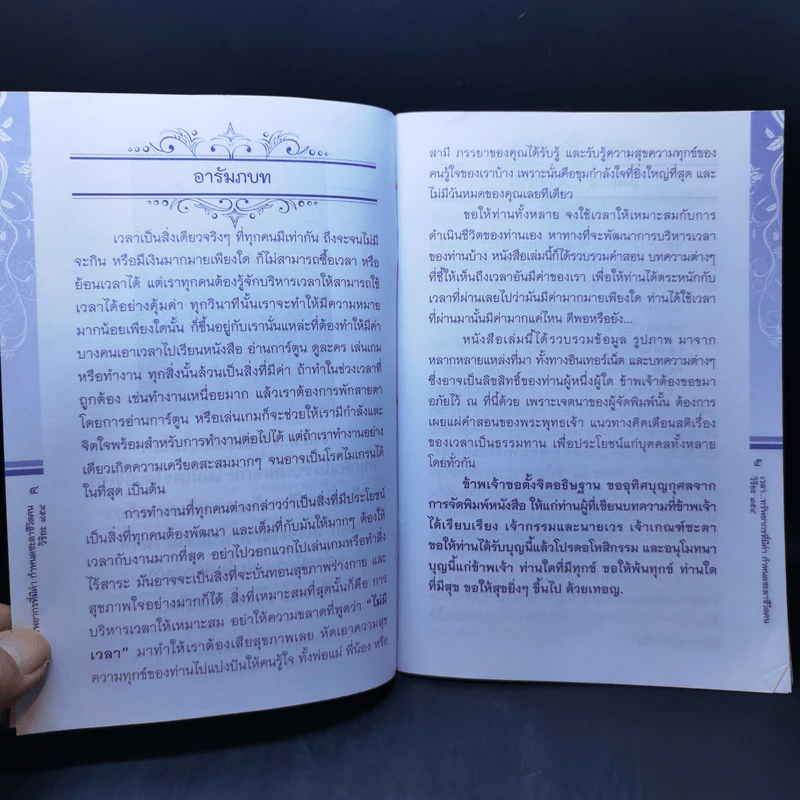 อารัมภบท
เวลาเป็นสิ่งเดียวจริงๆ ที่ทุกคนมีเท่ากัน ถึงจะจนไม่มี
จะกิน หรือมีเงินมากมายเพียงใด ก็ไม่สามารถซื้อเวลา หรือ
ย้อนเวลาได้ แต่เราทุกคนต้องรู้จักบริหารเวลาให้สามารถใช้
เวลาได้อย่างคุ้มค่า ทุกวินาทีนั้นเราจะทำให้มีความหมาย
มากน้อยเพียงใดนั้น ก็ขึ้นอยู่กับเรานั่นแหล่ะที่ต้องทำให้มีค่า
บางคนเอาเวลาไปเรียนหนังสือ อ่านการ์ตูน ดูละคร เล่นเกม
หรือทำงาน ทุกสิ่งนั้นล้วนเป็นสิ่งที่มีค่า ถ้าทำในช่วงเวลาที่
ถูกต้อง เช่นทำงานเหนื่อยมาก แล้วเราต้องการพักสายตา
โดยการอ่านการ์ตูน หรือเล่นเกมก็จะช่วยให้เรามีกำลังและ
จิตใจพร้อมสำหรับการทำงานต่อไปได้ แต่ถ้าเราทำงานอย่าง
เดียวเกิดความเครียดสะสมมากๆ จนอาจเป็นโรคไมเกรนได้
ในที่สุด เป็นต้น
การทำงานที่ทุกคนต่างกล่าวว่าเป็นสิ่งที่มีประโยชน์
เป็นสิ่งที่ทุกคนต้องพัฒนา และเต็มที่กับมันให้มากๆ ต้องให้
เวลากับงานมากที่สุด อย่าไปวอกแวกไปเล่นเกมหรือทำสิ่ง
ไร้สาระ มันอาจจะเป็นสิ่งที่จะบั่นทอนสุขภาพร่างกาย และ
สุขภาพใจอย่างมากก็ได้ สิ่งที่เหมาะสมที่สุดนั้นก็คือ การ
บริหารเวลาให้เหมาะสม อย่าให้ความขลาดที่พูดว่า "ไม่มี
เวลา" มาทำให้เราต้องเสียสุขภาพเลย หัดเอาความสุข
ความทุกข์ของท่านไปแบ่งปันให้คนรู้ใจ ทั้งพ่อแม่ พี่น้อง หรือ
พยากรที่มีค่า กำหนดชะตาชีวิตคน
วิริยะ ๘๕๔
สามี ภรรยาของคุณได้รับรู้ และรับรู้ความสุขความทุกข์ของ
คนรู้ใจของเราบ้าง เพราะนั่นคือขุมกำลังใจที่ยิ่งใหญ่ที่สุด และ
ไม่มีวันหมดของคุณเลยทีเดียว
ขอให้ท่านทั้งหลาย จงใช้เวลาให้เหมาะสมกับการ
ดำเนินชีวิตของท่านเอง หาทางที่จะพัฒนาการบริหารเวลา
ของท่านบ้าง หนังสือเล่มนี้ก็ได้รวบรวมคำสอน บทความต่างๆ
ที่ชี้ให้เห็นถึงเวลาอันมีค่าของเรา เพื่อให้ท่านได้ตระหนักกับ
เวลาที่ผ่านเลยไปว่ามันมีค่ามากมายเพียงใด ท่านได้ใช้เวลา
ที่ผ่านมานั้นมีค่ามากแค่ไหน ดีพอหรือยัง...
หนังสือเล่มนี้ได้รวบรวมข้อมูล รูปภาพ มาจาก
หลากหลายแหล่งที่มา ทั้งทางอินเทอร์เน็ต และบทความต่างๆ
ซึ่งอาจเป็นลิขสิทธิ์ของท่านผู้หนึ่งผู้ใด ข้าพเจ้าต้องขอขมา
อภัยไว้ ณ ที่นี้ด้วย เพราะเจตนาของผู้จัดพิมพ์นั้น ต้องการ
เผยแผ่คำสอนของพระพุทธเจ้า แนวทางคิดเตือนสติเรื่อง
ของเวลาเป็นธรรมทาน เพื่อประโยชน์แก่บุคคลทั้งหลาย
โดยทั่วกัน
ข้าพเจ้าขอตั้งจิตอธิษฐาน ขออุทิศบุญกุศลจาก
การจัดพิมพ์หนังสือ ให้แก่ท่านผู้ที่เขียนบทความที่ข้าพเจ้า
ได้เรียบเรียง เจ้ากรรมและนายเวร เจ้าเกณฑ์ชะตา
ขอให้ท่านได้รับบุญนี้แล้วโปรดอโหสิกรรม และอนุโมทนา
บุญนี้แก่ข้าพเจ้า ท่านใดที่มีทุกข์ ขอให้พ้นทุกข์ ท่านใด
ที่มีสุข ขอให้สุขยิ่งๆ ขึ้นไป ด้วยเทอญ.
เวลา...ทรัพยากรที่มีค่า กำหนดชะตาชีวิตคน
วิริยะ ๘๕๔